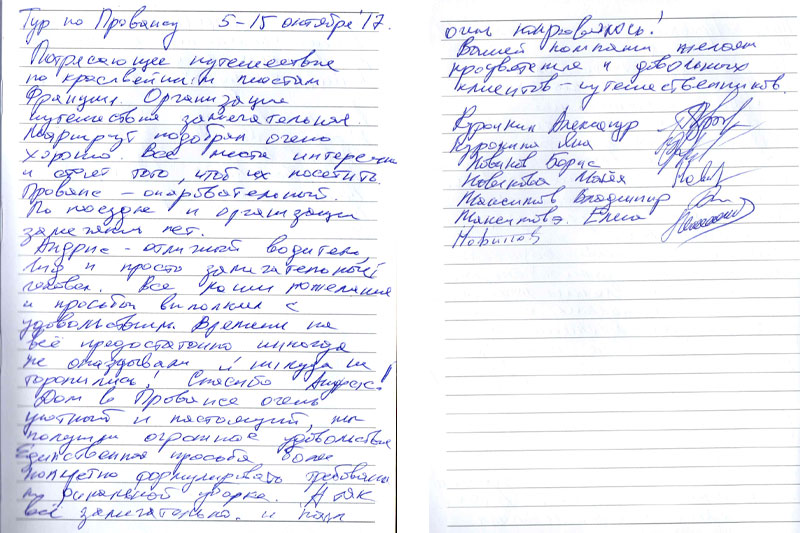 Тур по Провансу 5-15 октября'17.
Потрясающее путешествие
по красивейшим местам
Франции. Организация
путешествия замечательная.
Маршрут подобран очень
хорошо. Все места интересны
и стоят того, чтоб их посетить.
Прованс - очаровательный.
По поездке и организации
замечаний нет.
Андрис - отличный водитель,
гид и просто замечательный
человек. Все наши пожелания
и просьбы выполнял с
удовольствием. Времени на
всё предостаточно никогда
не опаздывали и никуда не
торопились! Спасибо Андрису!
Дом в Провансе очень
уютный и настоящий, мы
получили огромное удовольствие
Единственная просьба более
конкретно формулировать требования
по финальной уборке. А так
всё замечательно. и нам
очень понравилось!
Вашей компании желаем
процветания и довольных
клиентов-путешественников.
Курочкин Александр
Курочкина Яна
Новиков Борис
Новикова Майя
Максимов Владимир
Максимова Елена